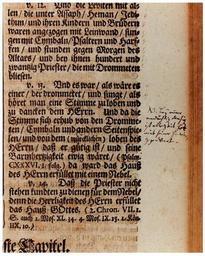 v. 12. Und die Leviten mit al-
len, die unter Assaph, Heman, Jedi-
thun und ihren Kindern und Brüdern
waren angezogen mit Leinwand, sun-
gen mit Cymbaln, Psaltern und Harf-
fen, und stunden gegen Morgen des
Altars, und bey ihnen hundert und
zwantzig Priester, die mit Drommeten
bliesen.
v. 13. Und es war, als wäre es
einer, der drommetet, und sünge, als
höret man eine Stimme zu loben und
zu dancken dem HErrn. Und da die
Stimme sich erhub von den Drommet-
ten, Cymbaln und andern Seitenspie-
len, und von dem loben des
HErrn, daß er gütig ist, und seine
Barmhertzigkeit ewig wäret,
CXXXVI. da ward das Hauß
des HErrn erfüllet mit einem Nebel.
v. 14. Daß die Priester nicht
stehen kunten zu dienen für dem Nebel,
denn die Herrligkeit des HErrn erfüllet
das Hauß GOttes. (2. Chron. VII. 1.
XL. 34. 4. Mos. IX. 15. 1. Kön.
IIX. 10.)
Capitel.